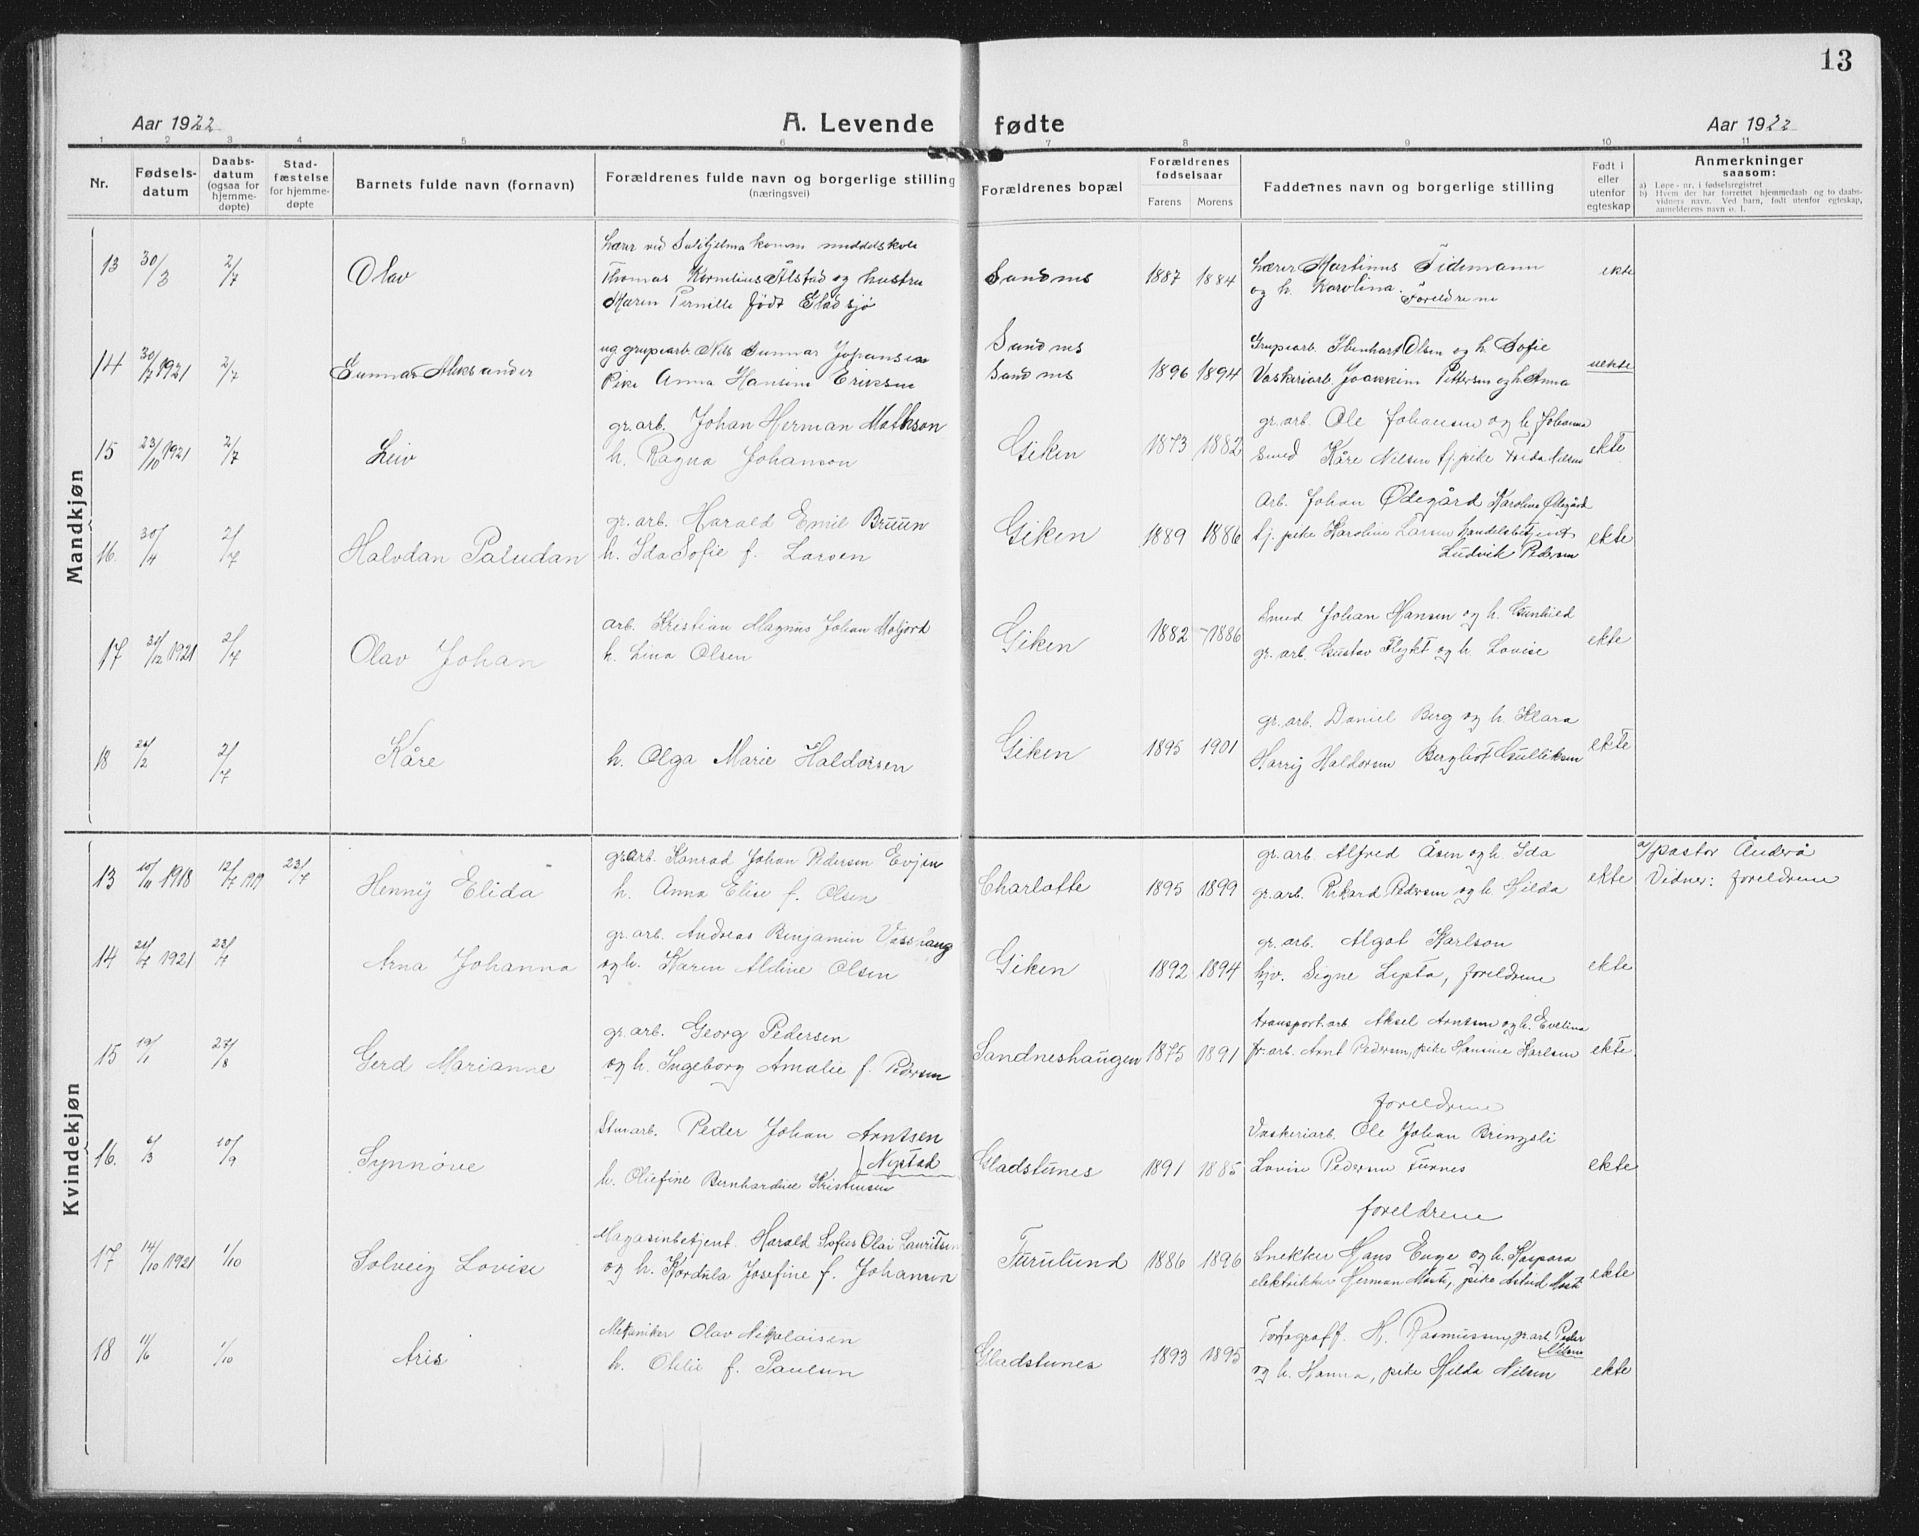 13
Aar 1922
A. Levende fødte
Aar 1922
1 2 3 4 5 6 7 8 9 10 11
Nr.
Fødsels-
datum
Daabs-
datum
(ogsaa for
hjemme-
døpte)
Stad-
fæstelse
for hjemme-
døpte
Barnets fulde navn (fornavn)
Forældrenes fulde navn og borgerlige stilling
(næringsvei)
Forældrenes bopæl
Forældrenes
fødselsaar
Farens Morens
Faddernes navn og borgerlige stilling
Født i
eller
utenfor
egteskap
Anmerkninger
saasom:
a) Løpe-nr. i fødselsregistret
b) Hvem der har forrettet hjemmedaab og to daabs-
vidners navn. Ved barn, født utenfor egteskap,
anmelderens navn o. l.
Mandkjøn
13 30/3 2/7 Olav
Lærer ved Sulitjelma komm middelskole
Thomas Kornelius Alstad og hustru
Maren Pernille født Eladsjø
Sandnes 1887 1884
Lærer Martinus Tidemann
og h. Karolina.
Foreldrene
ekte
14 30/7 1921 2/7 Gunnar Aleksander
ug grupearb. Nils Gunnar Johansen
Pike Anna Hansine Eriksen
Sandnes
Sandnes 1896 1894
Grupearb. Ibenhart Olsen og h. Sofie
Vaskeriarb. Joakkim Pettersen og h. Anna
uekte
15 23/10 1921 2/7 Leiv
gr.arb. Johan Herman Matkson
h. Ragna Johanson
Giken 1873 1882
gr.arb. Ole Johansen og h. Johanna
Smed Kåre Nilsen tj.pike Frida Nilsen
ekte
16. 30/4 2/7 Halvdan Paludan
gr.arb. Harald Emil Bruun
h. Ida Sofie f. Larsen
Giken 1889 1886
Arb. Johan Ødegård Karoline Ødegård
tj. pike Karoline Larsen handelsbetjent
Ludvik Pedersen
ekte
17 31/12 1921 2/7 Olav Johan
arb. Kristian Magnus Johan Moljord
h. Lina Olsen
Giken 1882 - 1886
Smed Johan Hansen og h. Gunhild
gr.arb. Gustav Flykt og h. Lovise
ekte
18 26/2 2/7 Kåre
h. Olga Marie Haldorsen
Giken 1895 1901
gr.arb. Daniel Berg og h. Klara
Harry Haldorsen Berghof Gulliksen
ekte
Kvindekjøn
13 10/11 1918 12/7 1919 23/7 Henny Elida
gr.arb. Konrad Johan Pedersen Evjen
h. Anna Elise f. Olsen
Charlotte 1895 1899
gr.arb. Alfred Åsen og h. Ida
gr.arb. Rikard Pedersen og h. Hilda
ekte
a/ pastor Anderå
Vidner: foreldrene
14 21/4 1921 23/4 Arna Johanna
gr.arb. Andreas Benjamin Vasshaug
og h. Karen Aldine Olsen
Giken 1892 1894
gr.arb. Algot Karlson
hjv. Signe Lysta, foreldrene
ekte
15 19/1 27/8 Gerd Marianne
gr.arb. Georg Pedersen
og h. Ingeborg Amalie f. Pedersen
Sandneshaugen 1875 1891
transport.arb Aksel Arntsen og h. Evelina
gr.arb. Arnt Pedersen, pike Hansine Karlsen
foreldrene
ekte.
16. 6/3 10/9 Synnøve
Peder Johan Arntsen
(Nystad
h. Oliefine Bernhardine Kristensen
Gladstunes 1891 1885
Vaskeriarb. Ole Johan Bringsli
Lovise Pedersen Furnes
foreldrene
ekte
17 14/10 1921 1/10 Solveig Lovise
Magasinbetjent. Harald Sofus Olai Lauritsen
og h. Kordula Josefine f. Johansen
Furulund 1886 1896
Snekker Hans Enge og h. Kaspara
elektrikker Herman Mosti, pike Astrid Mosti
ekte
18 14/6 1/10 Aris
Mekaniker Olav Nikolaisen
h. Otilie f. Paulsen
Gladstunes 1893 1895
Fotograff. H. Rasmussen, gr.arb. Peder
Nilsen
og h. Hanna, pike Hilda Nilsen
ekte